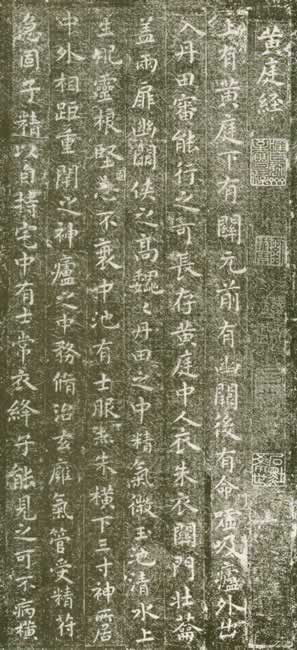 黄庭経
上有黄庭下有關元前有幽闕後有命嘘吸廬外出
入丹田審能行之可長存黄庭中人衣朱衣關門壯蘥
盖兩扉幽闕俠之髙巍〻丹田之中精氣微玉池清水上
生肥靈根堅志不衰中池有士服赤朱橫下三寸神所居
中外相距重閉之神廬之中務脩治玄廱氣管受精符
急固子精以自持宅中有士常衣絳子能見之可不病橫